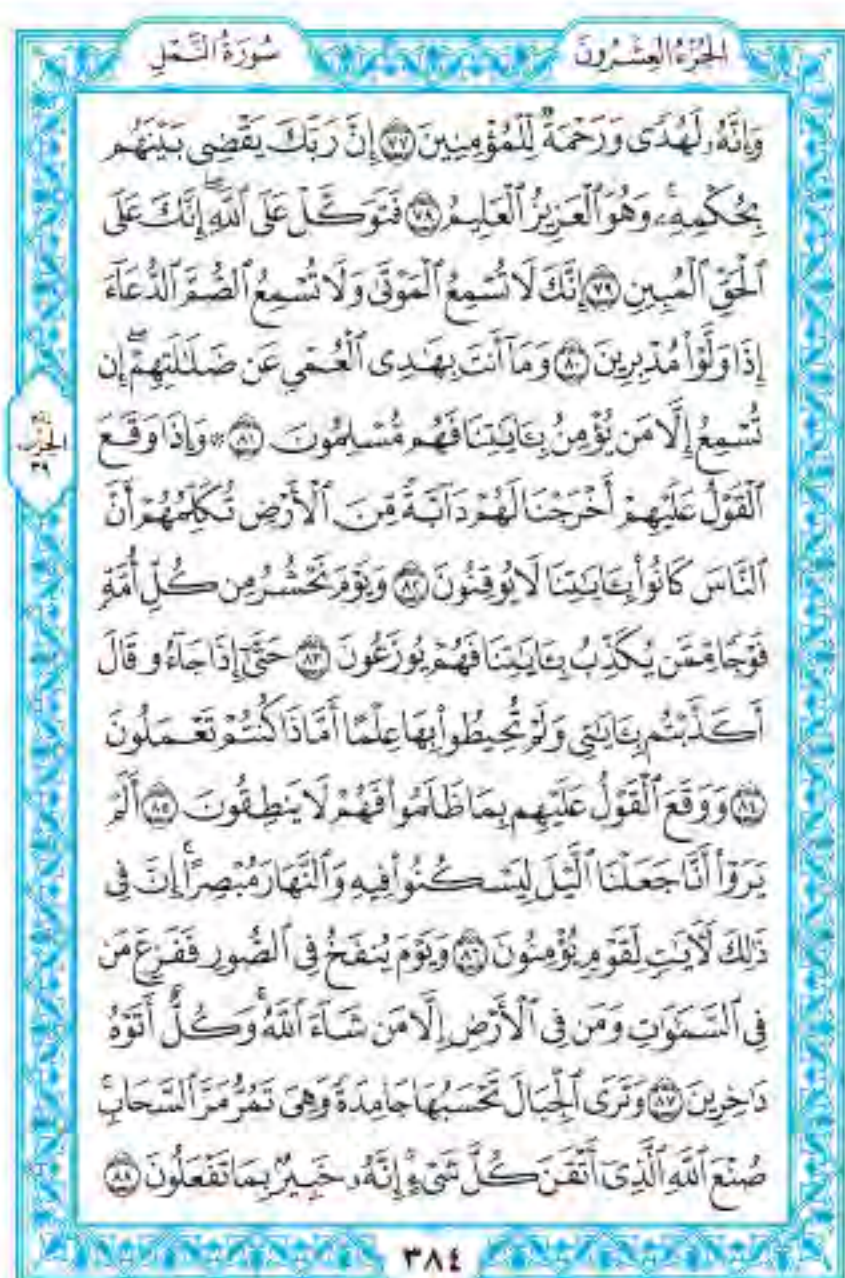 الجُزْءُ العِشْرُونَ سُورَةُ النَّمْلِ
وَإِنَّهُۥ لَهُدًى وَرَحْمَةٌ لِّلْمُؤْمِنِينَ ٧٧ إِنَّ رَبَّكَ يَقْضِى بَيْنَهُم
بِحُكْمِهِۦۚ وَهُوَ ٱلْعَزِيزُ ٱلْعَلِيمُ ٧٨ فَتَوَكَّلْ عَلَى ٱللَّهِۖ إِنَّكَ عَلَى
ٱلْحَقِّ ٱلْمُبِينِ ٧٩ إِنَّكَ لَا تُسْمِعُ ٱلْمَوْتَىٰ وَلَا تُسْمِعُ ٱلصُّمَّ ٱلدُّعَآءَ
إِذَا وَلَّوْا۟ مُدْبِرِينَ ٨٠ وَمَآ أَنتَ بِهَـٰدِى ٱلْعُمْىِ عَن ضَلَـٰلَتِهِمْۖ إِن
تُسْمِعُ إِلَّا مَن يُؤْمِنُ بِـَٔايَـٰتِنَا فَهُم مُّسْلِمُونَ ٨١ ۞ وَإِذَا وَقَعَ
الحزب
٣٩
ٱلْقَوْلُ عَلَيْهِمْ أَخْرَجْنَا لَهُمْ دَآبَّةً مِّنَ ٱلْأَرْضِ تُكَلِّمُهُمْ أَنَّ
ٱلنَّاسَ كَانُوا۟ بِـَٔايَـٰتِنَا لَا يُوقِنُونَ ٨٢ وَيَوْمَ نَحْشُرُ مِن كُلِّ أُمَّةٍ
فَوْجًا مِّمَّن يُكَذِّبُ بِـَٔايَـٰتِنَا فَهُمْ يُوزَعُونَ ٨٣ حَتَّىٰٓ إِذَا جَآءُو قَالَ
أَكَذَّبْتُم بِـَٔايَـٰتِى وَلَمْ تُحِيطُوا۟ بِهَا عِلْمًا أَمَّاذَا كُنتُمْ تَعْمَلُونَ
٨٤ وَوَقَعَ ٱلْقَوْلُ عَلَيْهِم بِمَا ظَلَمُوا۟ فَهُمْ لَا يَنطِقُونَ ٨٥ أَلَمْ
يَرَوْا۟ أَنَّا جَعَلْنَا ٱلَّيْلَ لِيَسْكُنُوا۟ فِيهِ وَٱلنَّهَارَ مُبْصِرًاۚ إِنَّ فِى
ذَٰلِكَ لَـَٔايَـٰتٍ لِّقَوْمٍ يُؤْمِنُونَ ٨٦ وَيَوْمَ يُنفَخُ فِى ٱلصُّورِ فَفَزِعَ مَن
فِى ٱلسَّمَـٰوَٰتِ وَمَن فِى ٱلْأَرْضِ إِلَّا مَن شَآءَ ٱللَّهُۚ وَكُلٌّ أَتَوْهُ
دَٰخِرِينَ ٨٧ وَتَرَى ٱلْجِبَالَ تَحْسَبُهَا جَامِدَةً وَهِىَ تَمُرُّ مَرَّ ٱلسَّحَابِۚ
صُنْعَ ٱللَّهِ ٱلَّذِىٓ أَتْقَنَ كُلَّ شَىْءٍۚ إِنَّهُۥ خَبِيرٌۢ بِمَا تَفْعَلُونَ ٨٨
٣٨٤